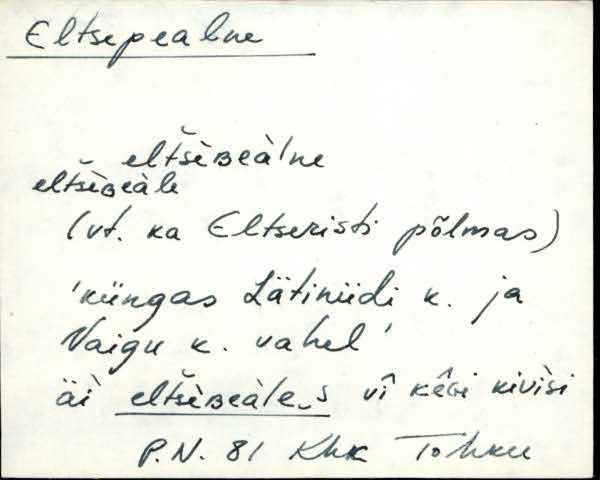 Eltsepealne
eltšèʙeàlne
eltšèʙeàle
(vt. ka Eltseristi põlmas)
'küngas Lätiniidi k. ja
Naigu k. vahel'
äì eltšèʙeàle_s vî kêɢi kivìsi
P.N. 81 Khk Tohku